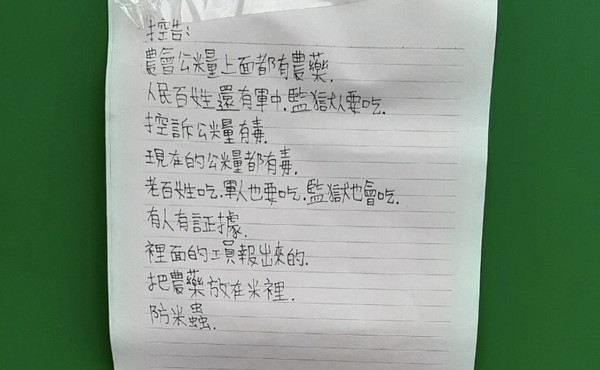 控告:
農會公米量上面都有農藥.
人民百姓還有軍中.監獄人要吃.
控訴公糧有毒.
現在的公糧都有毒.
老百姓吃.軍人也要吃.監獄也會吃.
有人有証據.
裡面的工員報出來的.
把農藥放在米裡.
防米蟲.